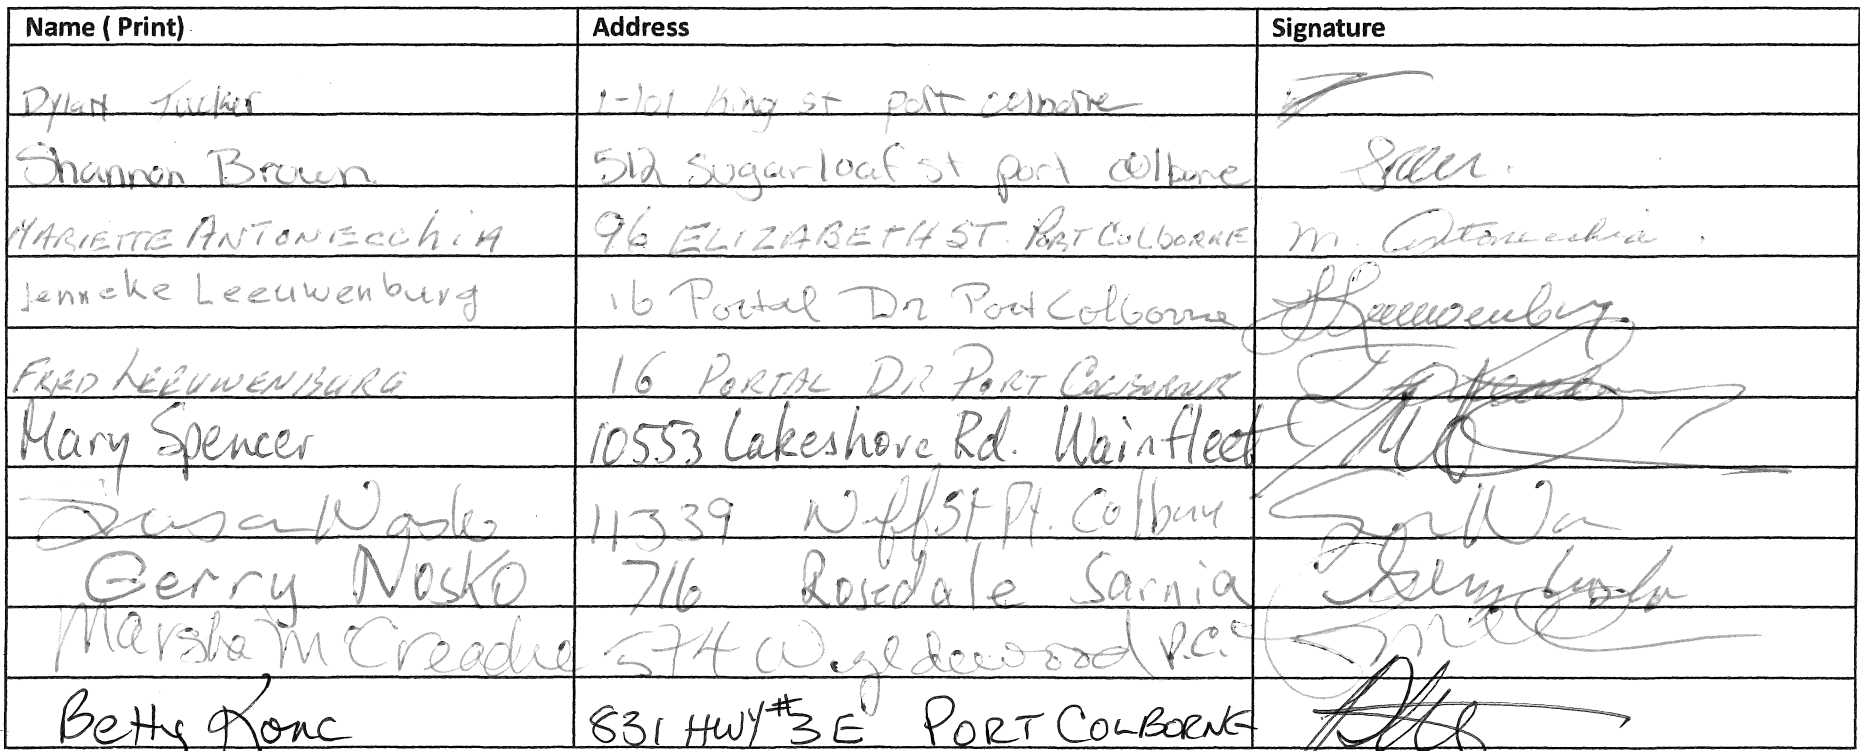 Name ( Print) Address Signature
Dylan Tucker 1-101 King st port colborne
Shannon Brown 512 sugarloaf st port colborne
MARIETTE ANTONECCHIA 96 ELIZABETH ST. PORT COLBORNE m. Antonecchia
Jenneke Leeuwenburg 16 Portal Dr Port Colborne J Leeuwenburg
FRED LEEUWENBURG 16 PORTAL DR PORT COLBORNE
Mary Spencer 10553 Lakeshore Rd. Wainfleet
Susan Nosko 11339 St Pt. Colburn
Gerry Nosko 716 Rosedale Sarnia
Marsha McCreadie 574 P.C.
Betty Konc 831 HWY #3 E PORT COLBORNE